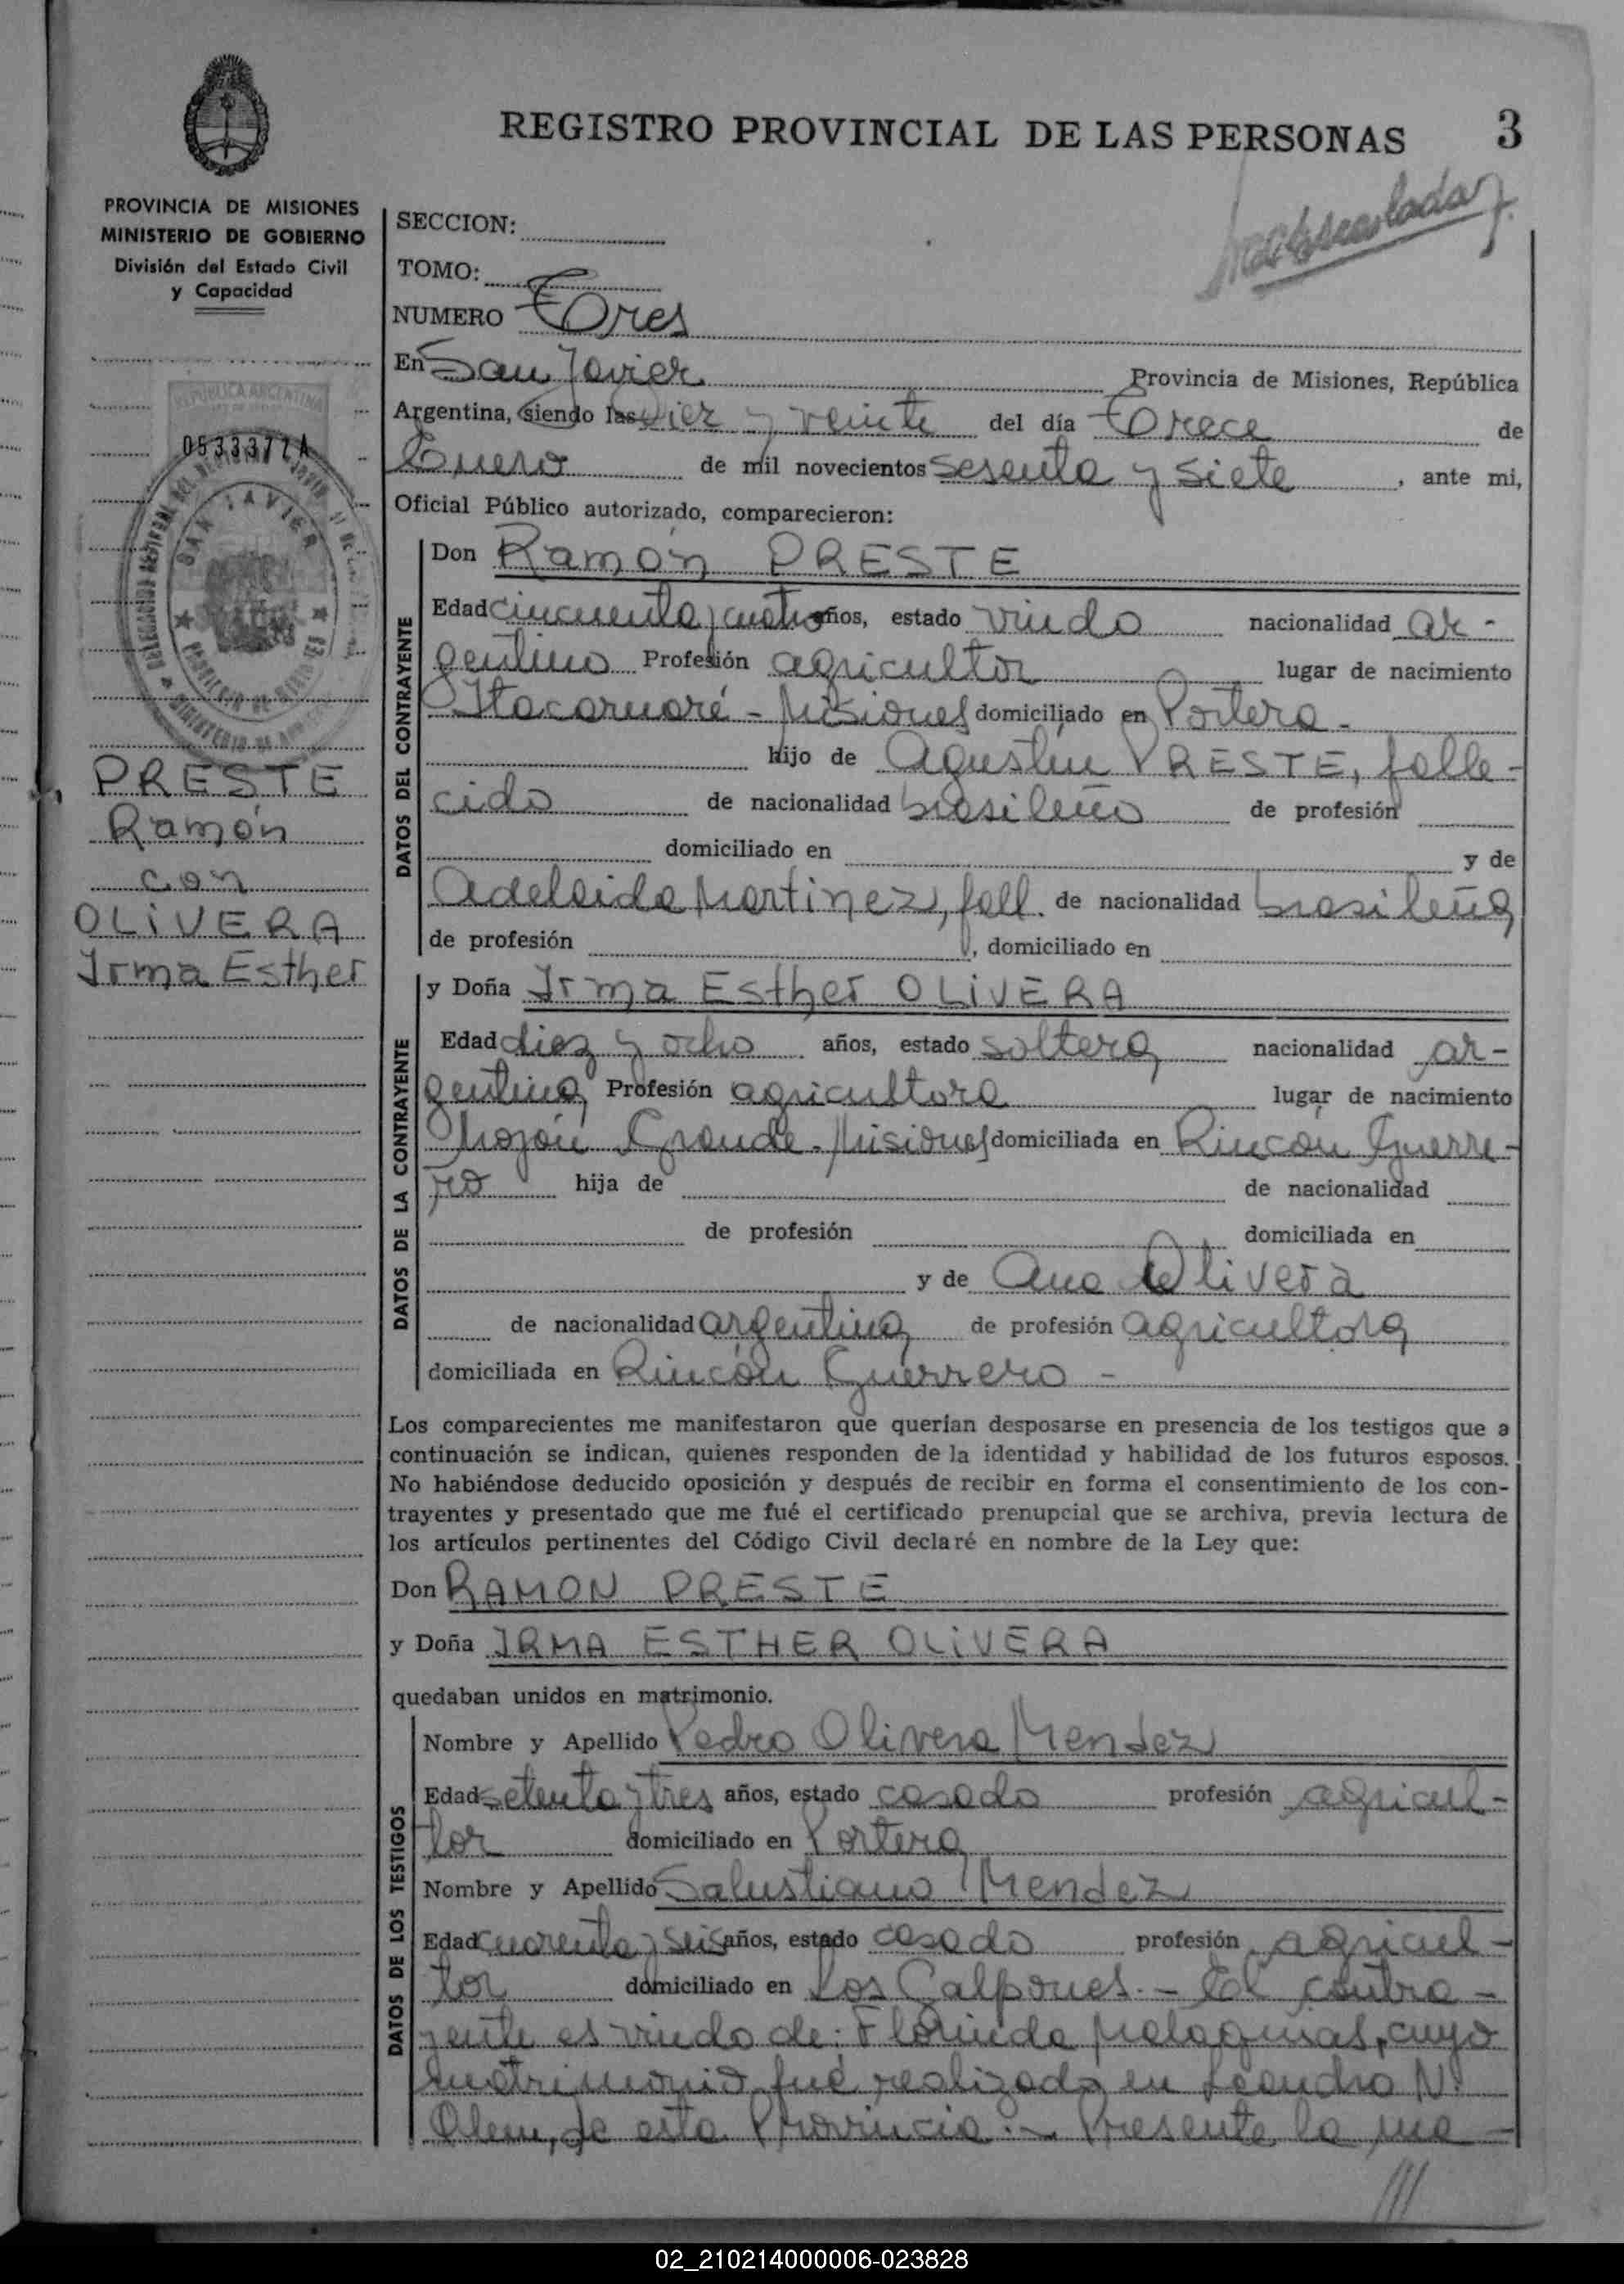 REGISTRO PROVINCIAL DE LAS PERSONAS 3
PROVINCIA DE MISIONES
MINISTERIO DE GOBIERNO
División del Estado Civil
y Capacidad
REPUBLICA ARGENTINA
0533377A
SAN JAVIER
PRESTE
Ramón
con
OLIVERA
Irma Esther
SECCION:
TOMO:
NUMERO Tres
En San Javier Provincia de Misiones, República
Argentina, siendo las diez y veinte del día Trece de
Enero de mil novecientos sesenta y siete, ante mi,
Oficial Público autorizado, comparecieron:
DATOS DEL CONTRAYENTE
Don Ramón PRESTE
Edad cincuenta y cuatro años, estado viudo nacionalidad ar-
gentino Profesión agricultor lugar de nacimiento
Itacaruaré - Misiones domiciliado en Portera -
hijo de Agustín PRESTE, falle-
cido de nacionalidad brasileño de profesión
domiciliado en y de
Adelaida Martinez, fall. de nacionalidad brasileña
de profesión , domiciliado en
DATOS DE LA CONTRAYENTE
y Doña Irma Esther OLIVERA
Edad diez y ocho años, estado soltera nacionalidad ar-
gentina Profesión agricultora lugar de nacimiento
Mojón Grande - Misiones domiciliada en Rincón Guerre-
ro hija de de nacionalidad
de profesión domiciliada en
y de Ana Olivera
de nacionalidad argentina de profesión agricultora
domiciliada en Rincón Guerrero -
Los comparecientes me manifestaron que querían desposarse en presencia de los testigos que a
continuación se indican, quienes responden de la identidad y habilidad de los futuros esposos.
No habiéndose deducido oposición y después de recibir en forma el consentimiento de los con-
trayentes y presentado que me fué el certificado prenupcial que se archiva, previa lectura de
los artículos pertinentes del Código Civil declaré en nombre de la Ley que:
Don RAMON PRESTE
y Doña IRMA ESTHER OLIVERA
quedaban unidos en matrimonio.
DATOS DE LOS TESTIGOS
Nombre y Apellido Pedro Olivera Mendez
Edad setenta y tres años, estado casado profesión agricul-
tor domiciliado en Portera
Nombre y Apellido Salustiano Mendez
Edad cuarenta y seis años, estado casado profesión agricul-
tor domiciliado en Los Galpones. - El contra-
yente es viudo de: Florinda Malaquias, cuyo
matrimonio fué realizado en Leandro N.
Alem, de esta Provincia. - Presente la ma-
///
02_210214000006-023828